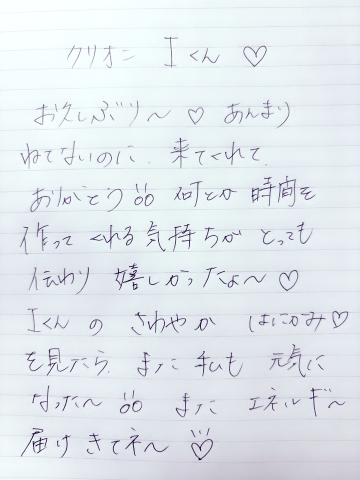 クリオニ Iくん ♡
お久しぶり〜 ♡ あんまり
ねてないのに、来てくれて、
ありがとう 何とか 時間を
作って くれる 気持ちが とっても
伝わり 嬉しかったよ〜 ♡
Iくん の さわやか はにかみ♡
を見たら、また 私も 元気に
なった〜 また エネルギ〜
届け きてネ〜 ♡